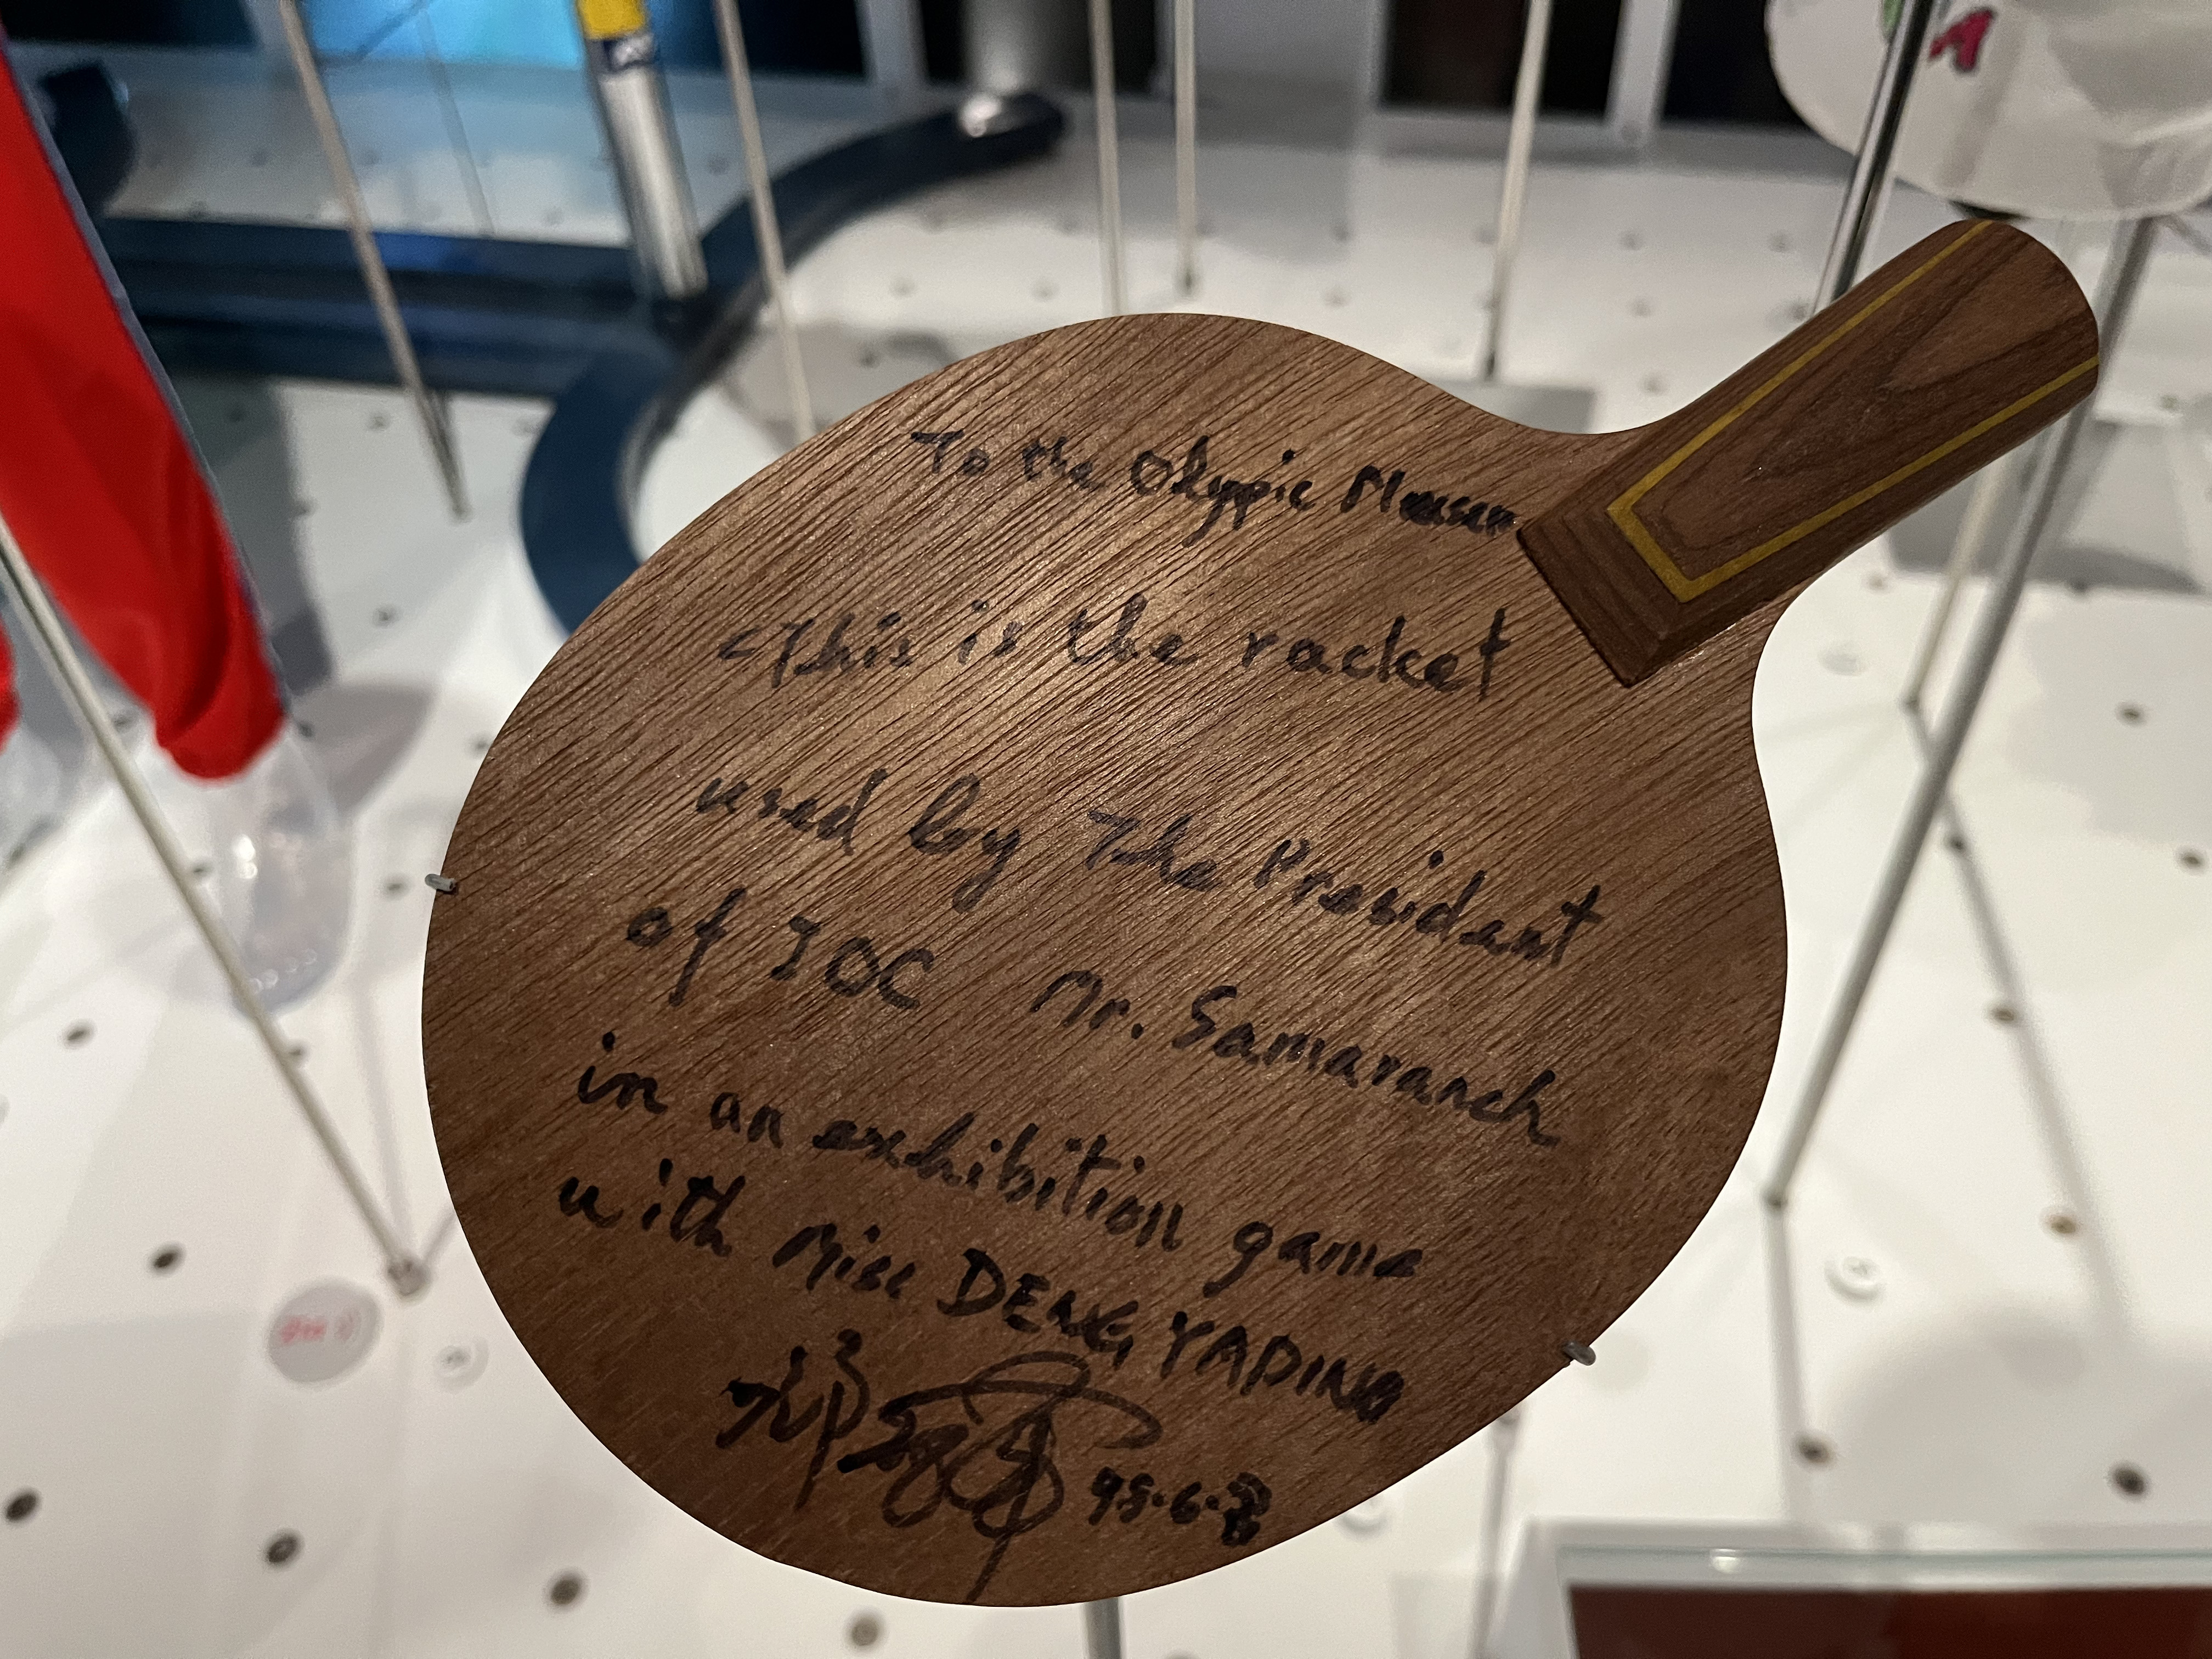 To the Olympic Museum
<This is the racket
used by The President
of IOC Mr. Samaranch
in an exhibition game
with Miss DENG YAPING
95.6.